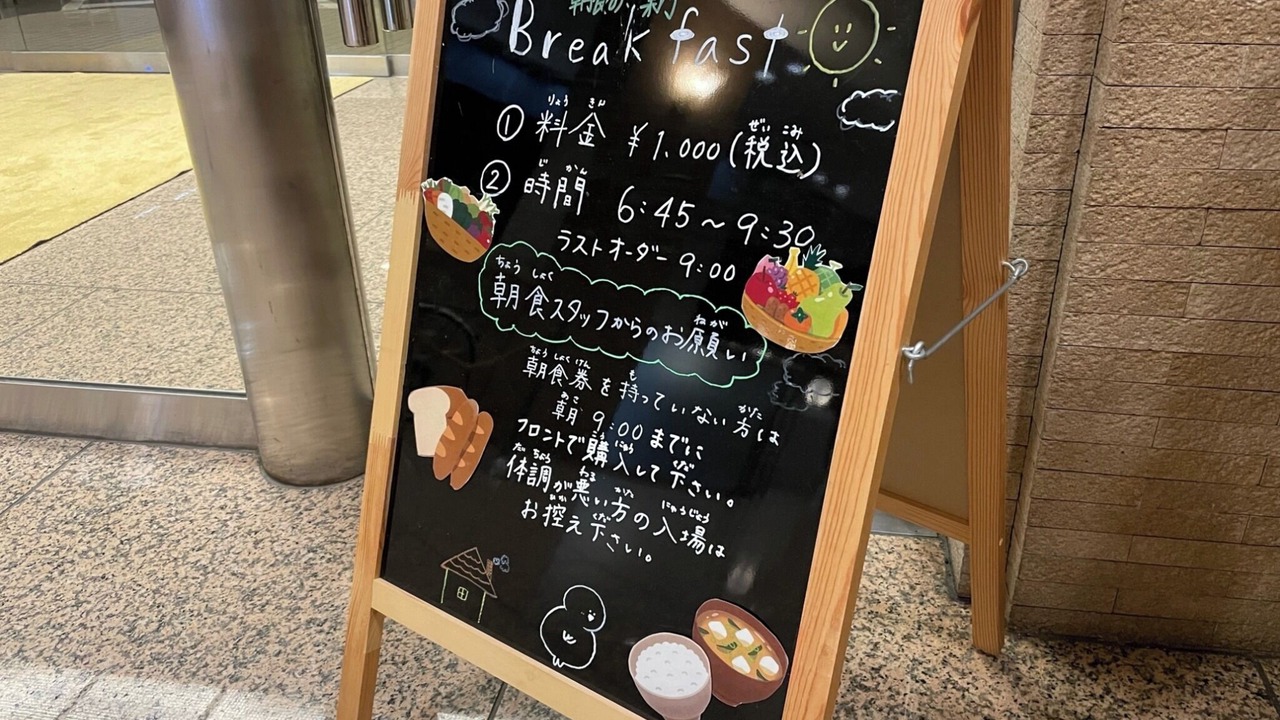 Breakfast
① 料金 ¥1.000 (税込)
② 時間 6:45～9:30
ラストオーダー 9:00
朝食スタッフからのお願い
朝食券を持っていない方は
朝 9:00 までに
フロントで購入して下さい。
体調が悪い方の入場は
お控え下さい。